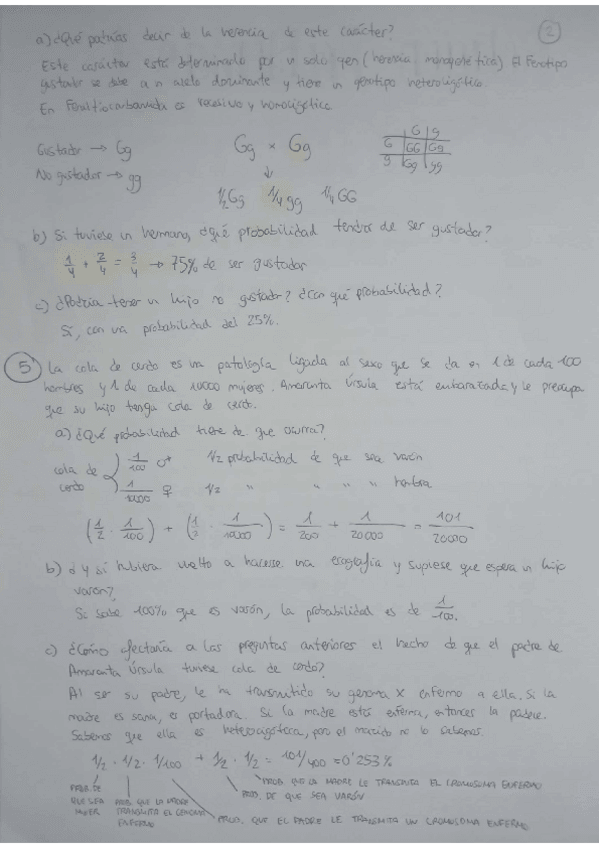 a) ¿Qué podrías decir de la herencia de este carácter? (2)
Este carácter está determinado por un solo gen (herencia monogenética) El fenotipo
gustador se debe a un alelo dominante y tiene un genotipo heterozigótico.
En Feniltiocarbamida es recesivo y homozigótico
Gustador → Gg
No gustador → gg
Gg x Gg
↓
1/2 Gg 1/4 gg 1/4 GG
G g
G GG Gg
g Gg gg
b) Si tuviese un hermano, ¿qué probabilidad tendrá de ser gustador?
1/4 + 2/4 = 3/4 → 75% de ser gustador
c) ¿Podría tener un hijo no gustador? ¿Con qué probabilidad?
Sí, con una probabilidad del 25%.
5 La cola de cerdo es una patología ligada al sexo que se da en 1 de cada 100
hombres y 1 de cada 10000 mujeres. Amaranta Úrsula está embarazada y le preocupa
que su hijo tenga cola de cerdo.
a) ¿Qué probabilidad tiene de que ocurra?
cola de cerdo
1/100 ♂ 1/2 probabilidad de que sea varón
1/10000 ♀ 1/2 " " " " hembra
(1/2 · 1/100) + (1/2 · 1/10000) = 1/200 + 1/20000 = 101/20000
b) ¿Y si hubiera vuelto a hacerse una ecografía y supiese que espera un hijo
varón?
Si sabe 100% que es varón, la probabilidad es de 1/100.
c) ¿Cómo afectaría a las preguntas anteriores el hecho de que el padre de
Amaranta Úrsula tuviese cola de cerdo?
Al ser su padre, le ha transmitido su genoma X enfermo a ella. Si la
madre es sana, es portadora. Si la madre está enferma, entonces la padece.
Sabemos que ella es heterozigótica, pero el marido no lo sabemos.
1/2 · 1/2 · 1/100 + 1/2 · 1/2 = 101/400 = 0'253%
PROB. QUE LA MADRE LE TRANSMITA EL CROMOSOMA ENFERMO
PROB. DE QUE SEA VARÓN
PROB. DE
QUE SEA
MUJER
PROB. QUE LA MADRE
TRANSMITA EL
ENFERMO
PROB. QUE EL PADRE LE TRANSMITA UN CROMOSOMA ENFERMO